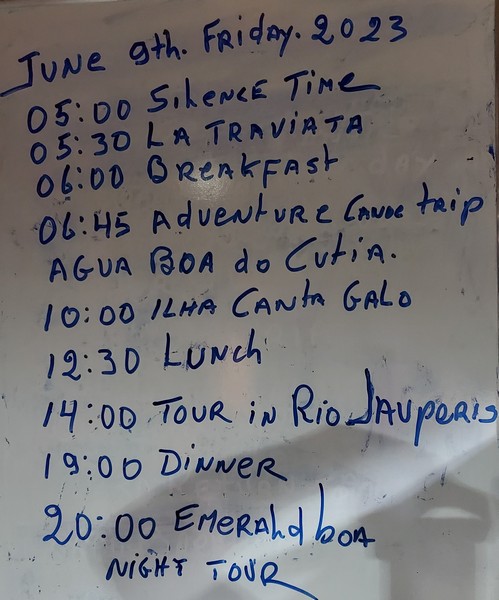 JUNE 9th. FRiday. 2023
05:00 SiLENCE TiME
05:30 LA TRAViATA
06:00 BREAKFAST
06:45 AdVENTURE CANOE TRip
AGUA BOA do CUTiA.
10:00 ILHA CANTA GALO
12:30 LUNCh
14:00 TOUR iN Rio JAUpERiS
19:00 DiNNER
20:00 EMERAldboa
NiGHT TOUR